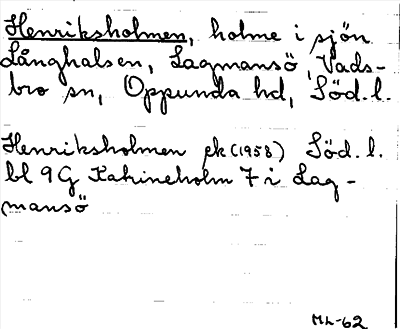 Henriksholmen, holme i sjön
Långhalsen, Lagmansö, Vads-
bro sn, Oppunda hd, Söd.l.
Henriksholmen ek (1958) Söd.l.
bl 9G Katrineholm 7 i Lag-
mansö
ML-62